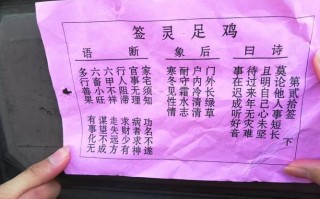 鸡足灵签
诗曰
第贰拾签 下
莫论他人事短长
且明自己心未坚
待过来年无灾难
事在迟成听好音
后象
门外长绿草
户内冷清清
耐守霜水志
寒冬见性情
断语
家宅须知 功名不遂
官事无理 病者求神
行人阻滞 求财少有
六甲不祥 走失远方
六畜小旺 谋望不成
多行善果 有事化无